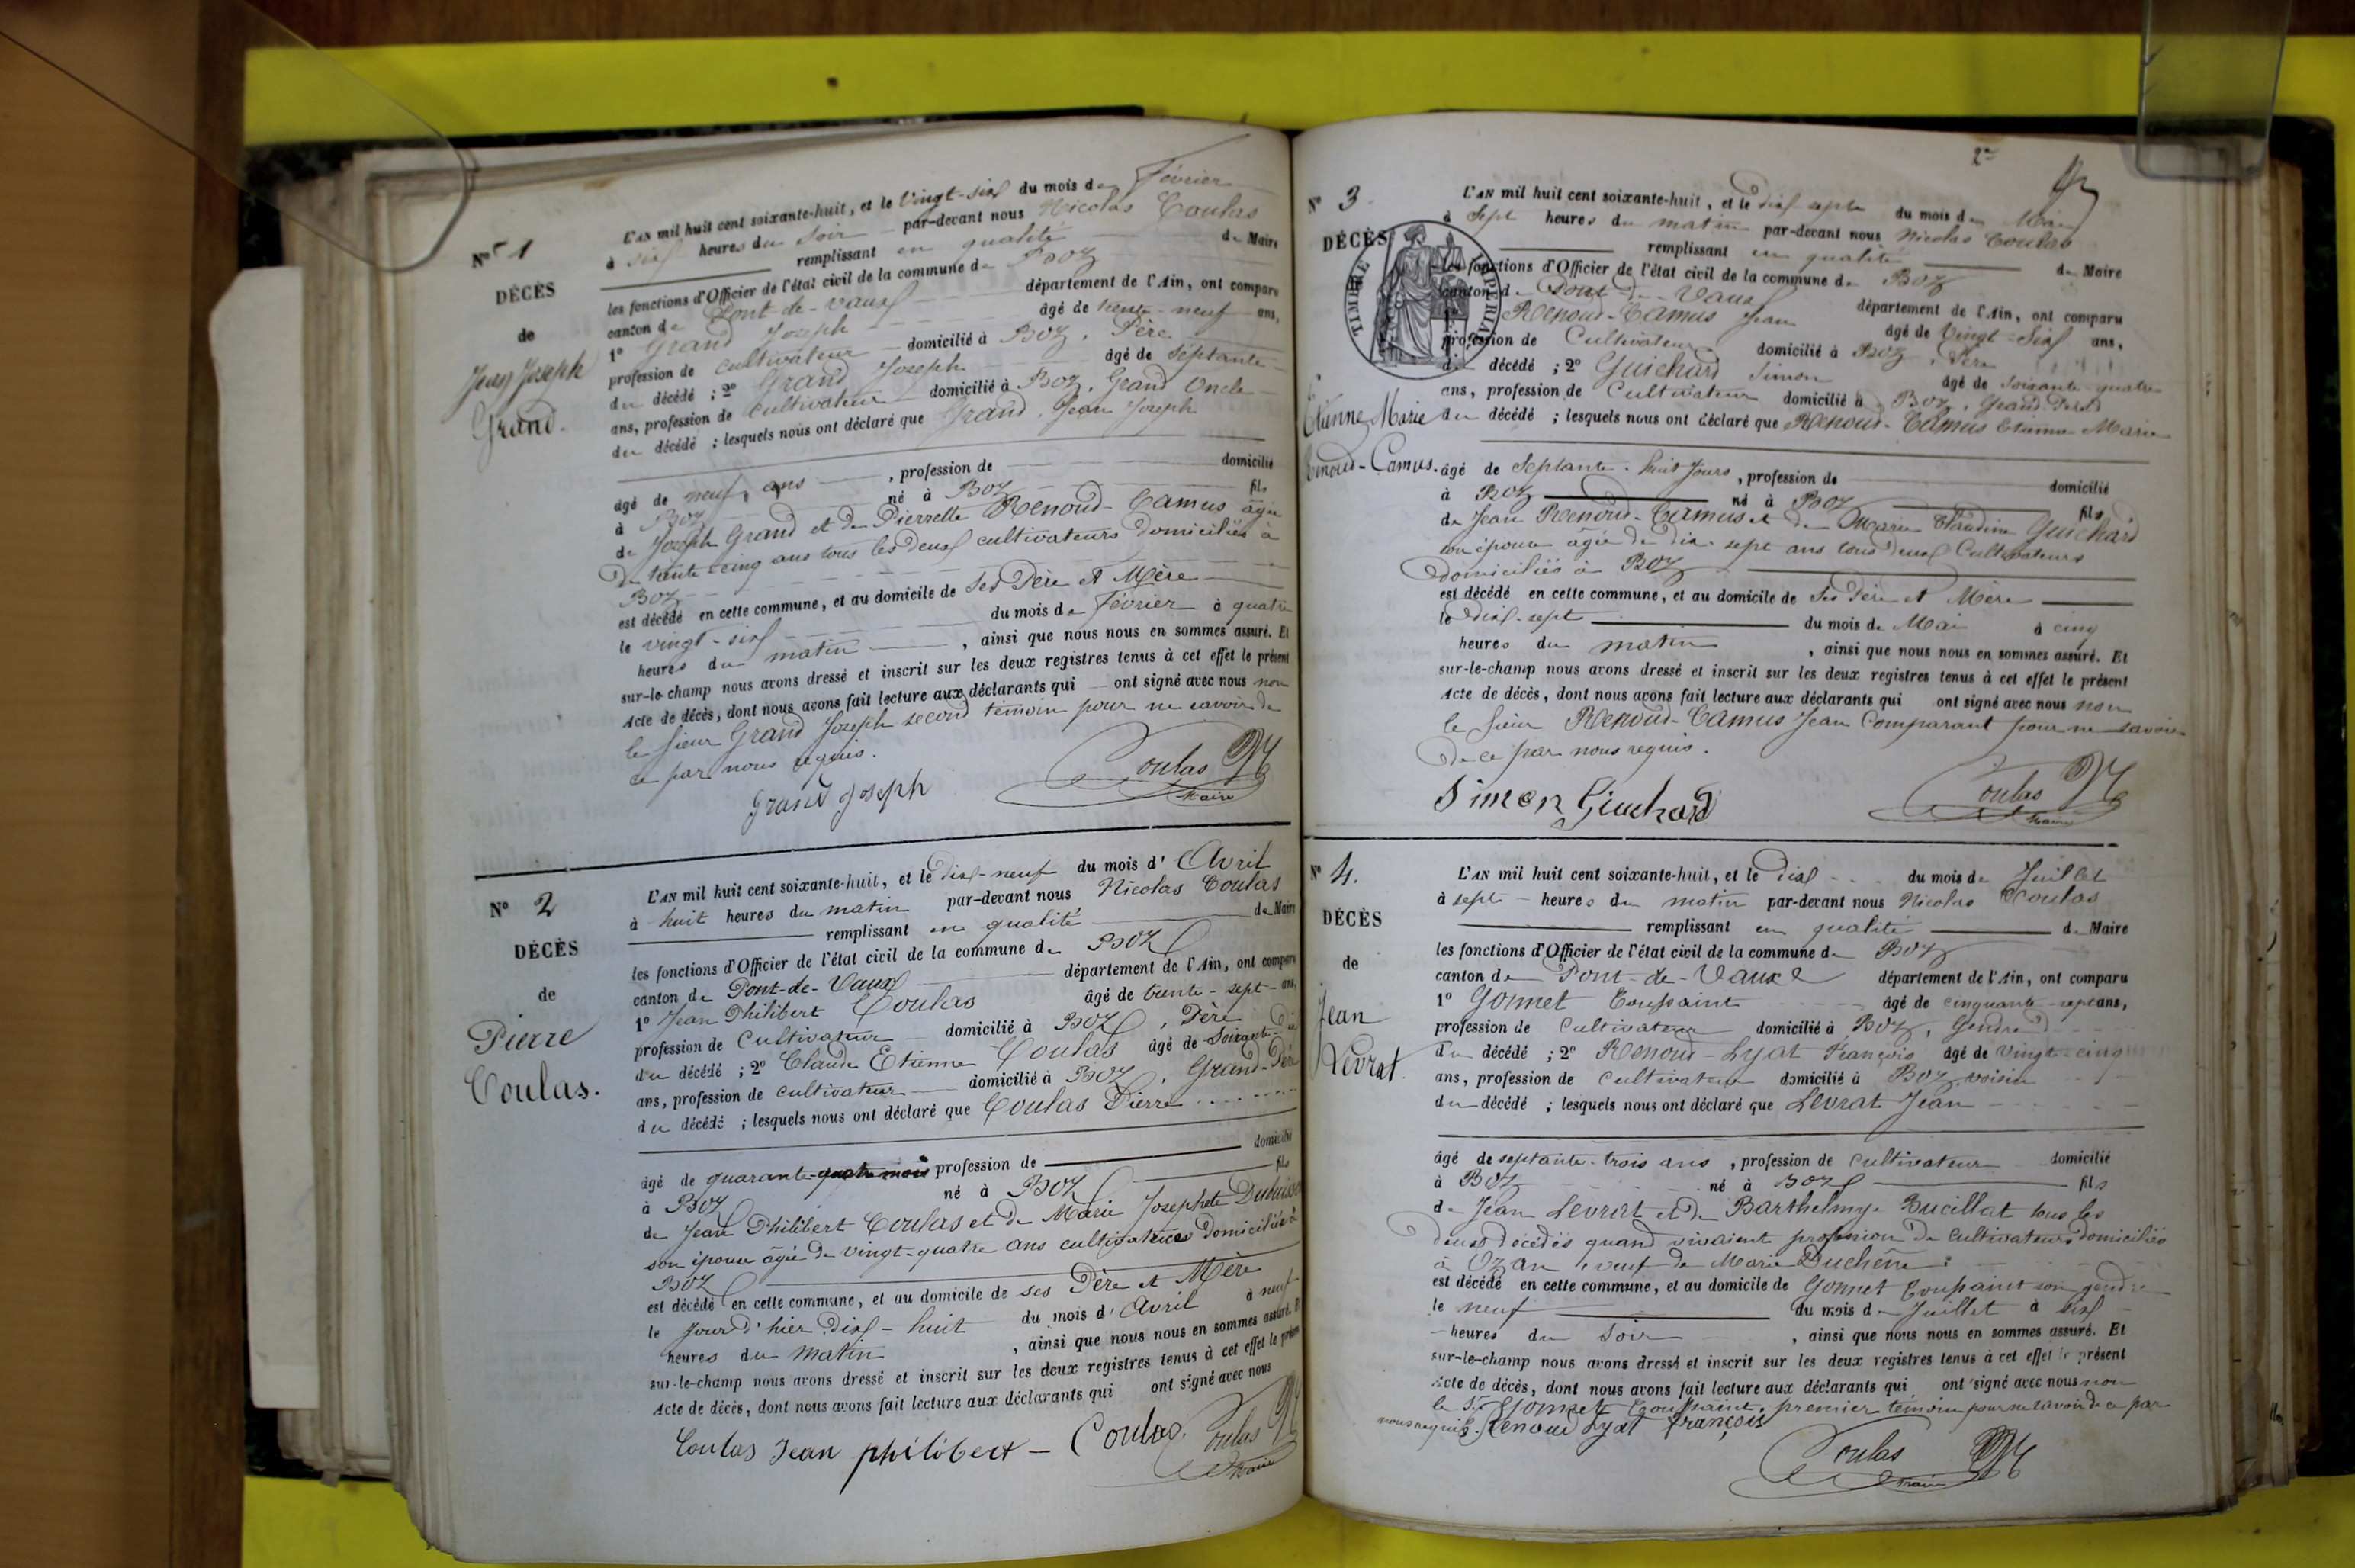 N° 1
DÉCÈS
de
Jean Joseph
Grand.
L'AN mil huit cent soixante-huit, et le Vingt-six du mois de Février
à six heures du soir par-devant nous Nicolas Coulas
remplissant en qualité de Maire
les fonctions d'Officier de l'état civil de la commune de Boz
canton de Pont-de-vaux département de l'Ain, ont comparu
1° Grand Joseph âgé de trente-neuf ans,
profession de cultivateur domicilié à Boz, Père
du décédé ; 2° Grand Joseph âgé de septante
ans, profession de cultivateur domicilié à Boz, Grand Oncle
du décédé ; lesquels nous ont déclaré que Grand Jean Joseph
âgé de neuf ans , profession de domicilié
à Boz né à Boz fils
de Joseph Grand et de Pierrette Renoud-Camus âgée
De trente-cinq ans tous les deux cultivateurs domiciliés à
Boz
est décédé en cette commune, et au domicile de ses Père et Mère
le vingt-six du mois de Février à quatre
heures du matin , ainsi que nous nous en sommes assuré. Et
sur-le-champ nous avons dressé et inscrit sur les deux registres tenus à cet effet le présent
Acte de décès, dont nous avons fait lecture aux déclarants qui ont signé avec nous non
le sieur Grand Joseph second témoin pour ne savoir de
ce par nous requis.
Grand Joseph
Coulas
Maire
N° 2
DÉCÈS
de
Pierre
Coulas.
L'AN mil huit cent soixante-huit, et le dix-neuf du mois d' Avril
à huit heures du matin par-devant nous Nicolas Coulas
remplissant en qualité de Maire
les fonctions d'Officier de l'état civil de la commune de Boz
canton de Pont-de-Vaux département de l'Ain, ont comparu
1° Jean Philibert Coulas âgé de trente-sept ans,
profession de Cultivateur domicilié à Boz, Père
du décédé ; 2° Claude Etienne Coulas âgé de Soixante-
ans, profession de cultivateur domicilié à Boz, Grand-Père
du décédé ; lesquels nous ont déclaré que Coulas Pierre
âgé de quarante quatre mois profession de domicilié
à Boz né à Boz fils
de Jean Philibert Coulas et de Marie Josephete
son épouse âgée de vingt-quatre ans cultivateurs domiciliés à
Boz
est décédé en cette commune, et au domicile de ses Père et Mère
le Jour d'hier dix-huit du mois d' Avril à neuf
heures du matin , ainsi que nous nous en sommes assuré. Et
sur-le-champ nous avons dressé et inscrit sur les deux registres tenus à cet effet le présent
Acte de décès, dont nous avons fait lecture aux déclarants qui ont signé avec nous
Coulas Jean philibert - Coulas. Coulas
Maire
2e
N° 3
DÉCÈS
TIMBRE IMPERIAL
Etienne Marie
Renoud-Camus.
L'AN mil huit cent soixante-huit, et le dix sept du mois de Mai
à sept heures du matin par-devant nous Nicolas Coulas
remplissant en qualité de Maire
les fonctions d'Officier de l'état civil de la commune de Boz
canton de Pont-de-Vaux département de l'Ain, ont comparu
Renoud-Camus Jean âgé de Vingt-Six ans,
profession de Cultivateur domicilié à Boz, Père
du décédé ; 2° Guichard Simon âgé de soixante-quatre
ans, profession de Cultivateur domicilié à Boz, Grand-Père
du décédé ; lesquels nous ont déclaré que Renoud-Camus Etienne Marie
âgé de Septante-huit Jours, profession de domicilié
à Boz né à Boz fils
de Jean Renoud-Camus et de Marie Claudine Guichard
son épouse âgée de dix-sept ans tous deux Cultivateurs
domiciliés à Boz
est décédé en cette commune, et au domicile de Ses Père et Mère
le Dix-sept du mois de Mai à cinq
heures du matin , ainsi que nous nous en sommes assuré. Et
sur-le-champ nous avons dressé et inscrit sur les deux registres tenus à cet effet le présent
Acte de décès, dont nous avons fait lecture aux déclarants qui ont signé avec nous non
le Sieur Renoud-Camus Jean Comparant pour ne savoir
De ce par nous requis.
Simon Guichard
Coulas
Maire
N° 4.
DÉCÈS
de
Jean
Levrat.
L'AN mil huit cent soixante-huit, et le Dix du mois de Juillet
à sept heures du matin par-devant nous Nicolas Coulas
remplissant en qualité de Maire
les fonctions d'Officier de l'état civil de la commune de Boz
canton de Pont-de-Vaux département de l'Ain, ont comparu
1° Gonnet Toussaint âgé de cinquante-sept ans,
profession de Cultivateur domicilié à Boz, Gendre
du décédé ; 2° Renoud-Lyat François âgé de vingt-cinq
ans, profession de Cultivateur domicilié à Boz, voisin
du décédé ; lesquels nous ont déclaré que Levrat Jean
âgé de septante-trois ans , profession de Cultivateur domicilié
à Boz né à Boz fils
de Jean Levrat et de Barthelmye Bucillat tous les
deux décédés quand vivaient profession De Cultivateurs domiciliés
à Ozan, veuf de Marie Duchêne
est décédé en cette commune, et au domicile de Gonnet Toussaint son gendre
le neuf du mois de Juillet à six
heures du Soir , ainsi que nous nous en sommes assuré. Et
sur-le-champ nous avons dressé et inscrit sur les deux registres tenus à cet effet le présent
Acte de décès, dont nous avons fait lecture aux déclarants qui ont signé avec nous non
le Sr. Gonnet Toussaint, premier témoin pour ne savoir de ce par
nous requis. Renoud Lyat François
Coulas
Maire